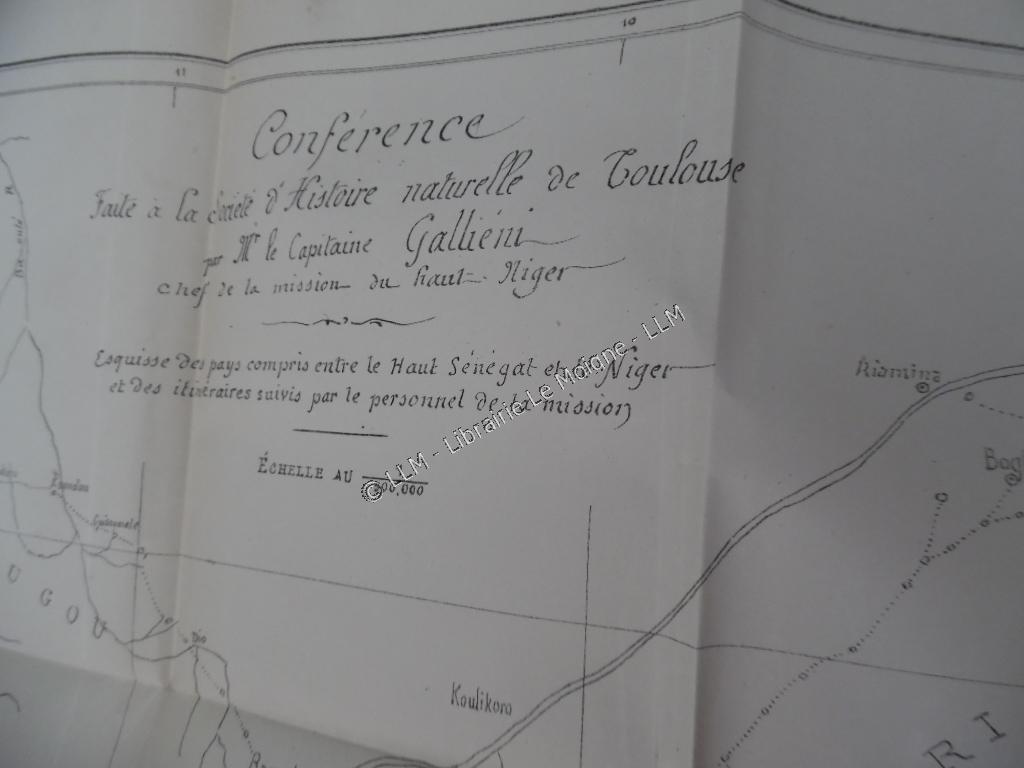 11
10
Conférence
Faite à la Société d'Histoire naturelle de Toulouse
par Mr le Capitaine Galliéni
chef de la mission du haut-Niger
Esquisse des pays compris entre le Haut Sénégal et le Niger
et des itinéraires suivis par le personnel de la mission
ÉCHELLE AU
Niamina
Koulikoro
Dio
U G O U
R I
© LLM - Librairie Le Moigne - LLM